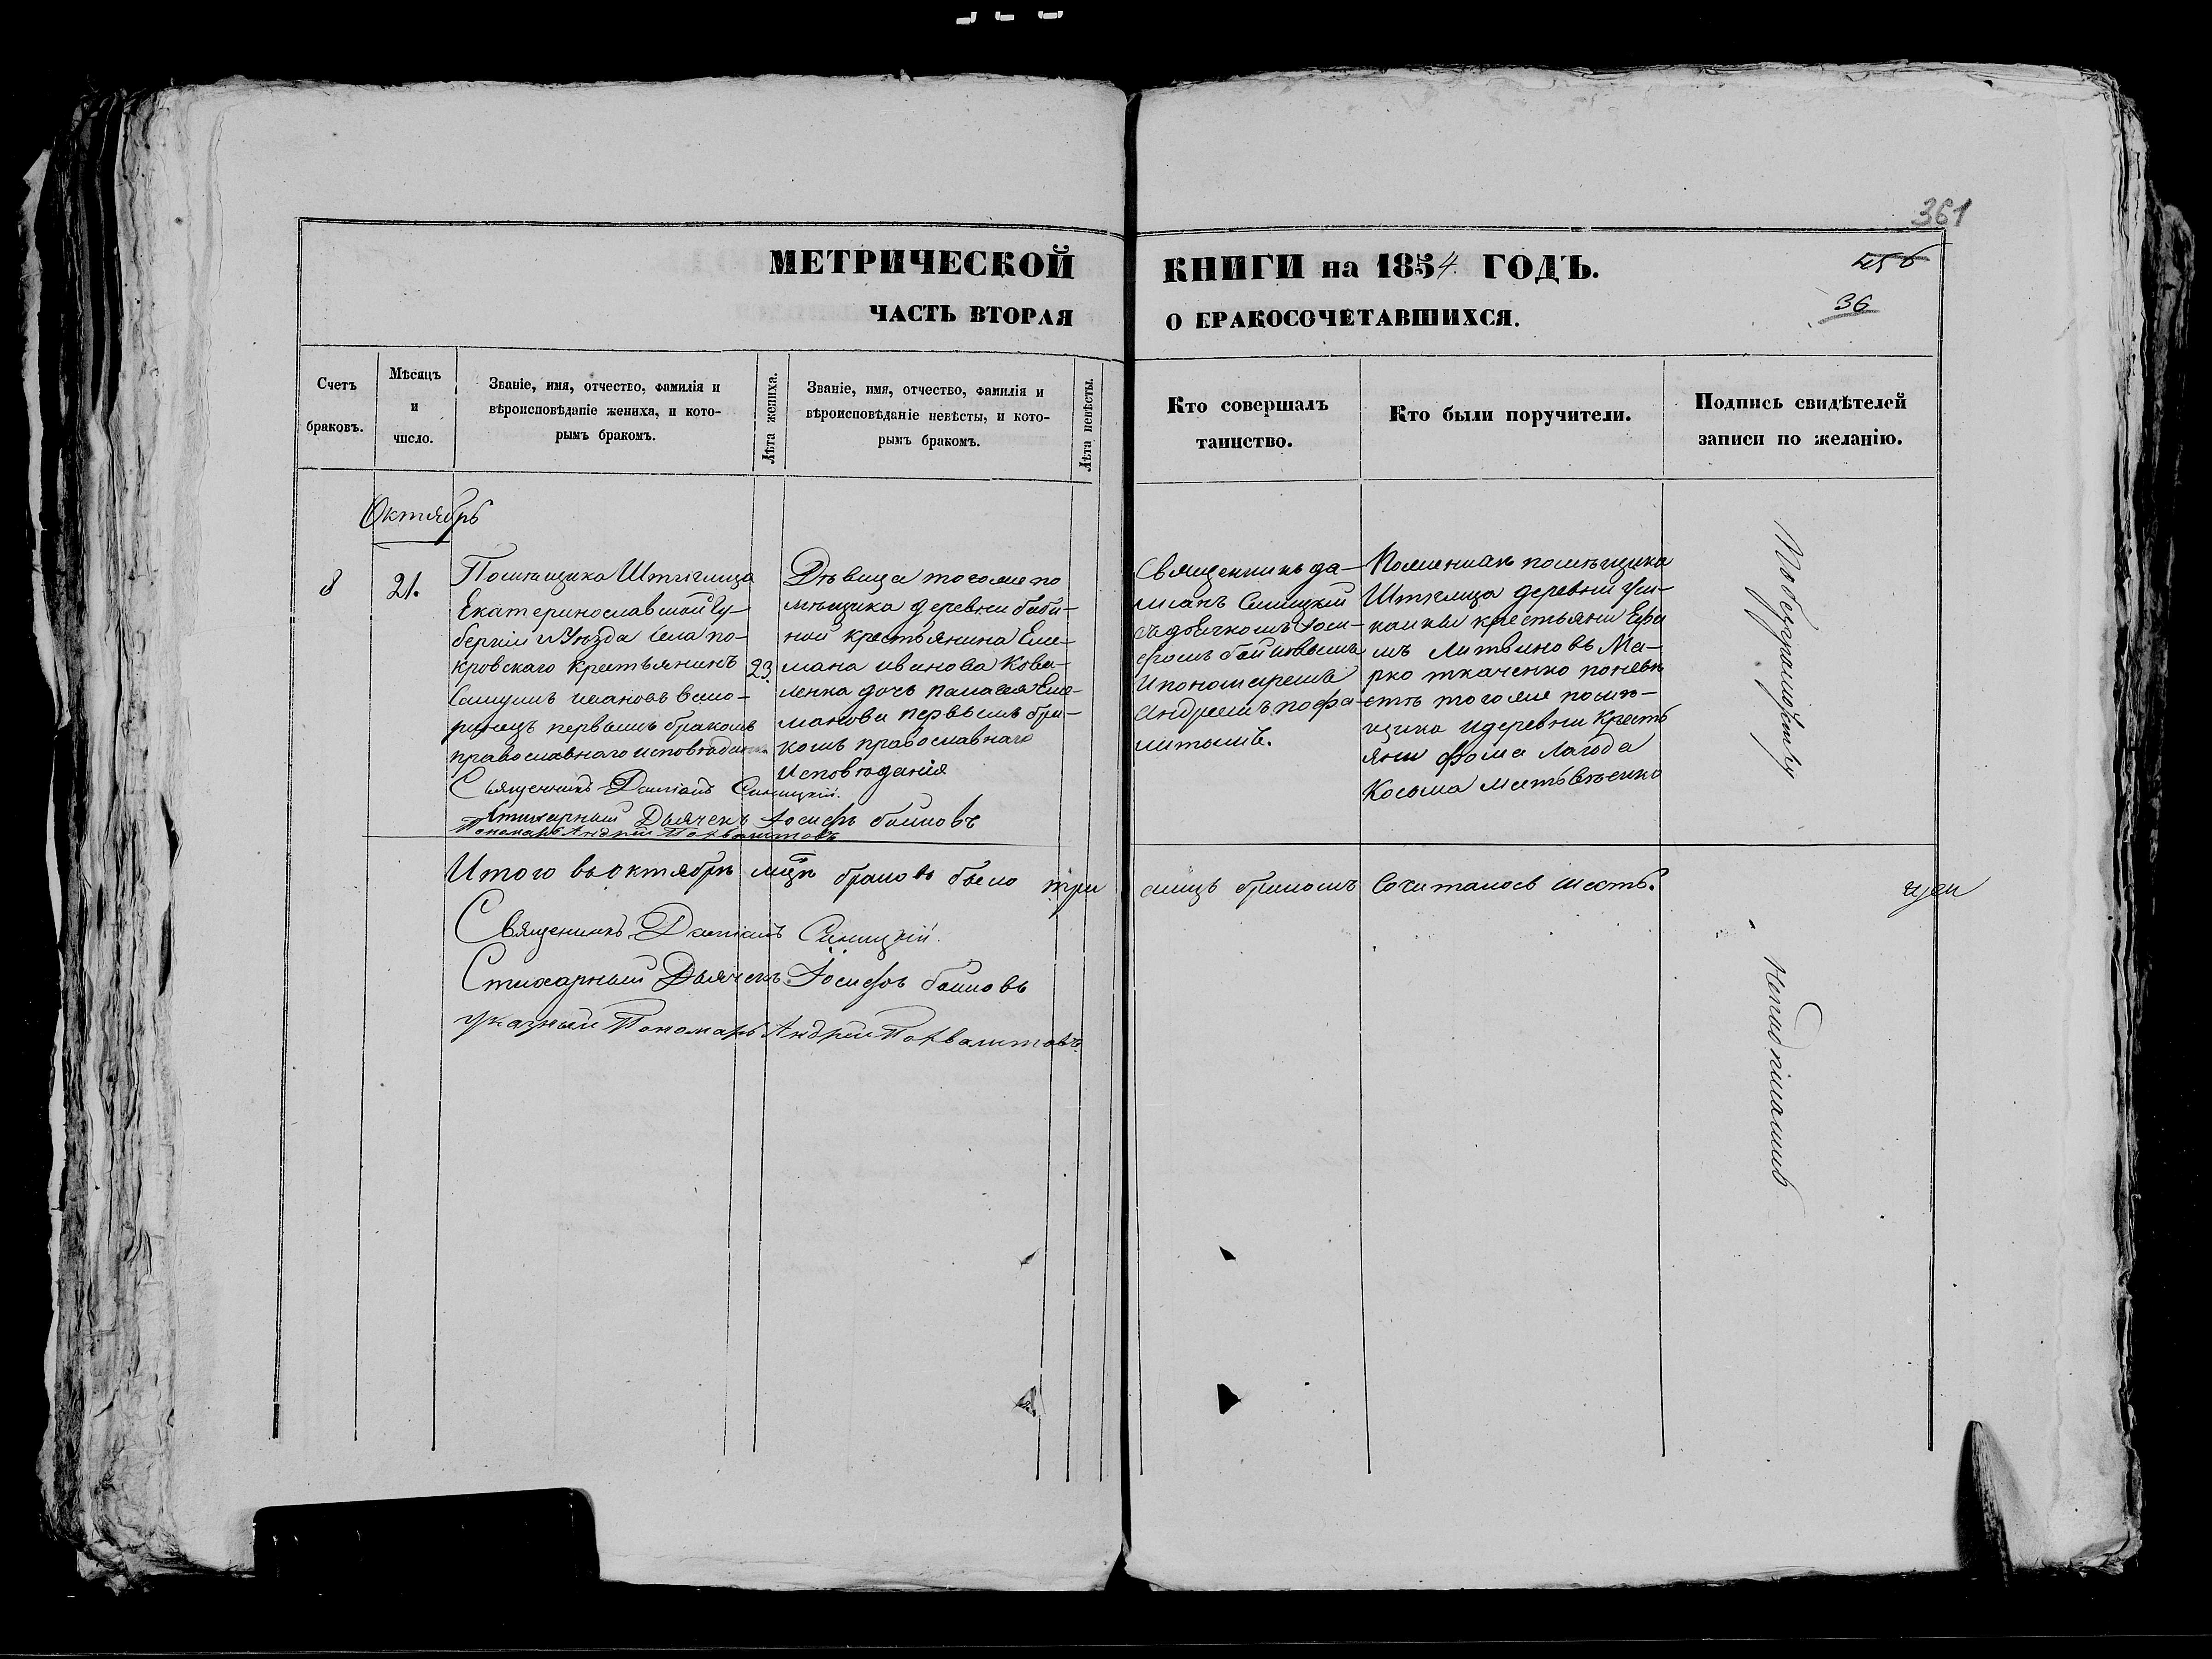 361
МЕТРИЧЕСКОЙ КНИГИ на 1854 ГОДЪ.
456
36
ЧАСТЬ ВТОРАЯ О БРАКОСОЧЕТАВШИХСЯ.
Счетъ
браковъ.
Мѣсяцъ
и
число.
Званіе, имя, отчество, фамилія и
вѣроисповѣданіе жениха, и кото-
рымъ бракомъ.
Лѣта жениха.
Званіе, имя, отчество, фамилія и
вѣроисповѣданіе невѣсты, и кото-
рымъ бракомъ.
Лѣта невѣсты.
Кто совершалъ
таинство.
Кто были поручители.
Подпись свидѣтелей
записи по желанію.
Октябрь
8
21.
Помѣщика Штиглица
Екатеринославской Гу-
берніи и Уѣзда села по-
кровскаго крестьянинъ
ивановъ
первымъ бракомъ
православнаго исповѣданія
23.
Дѣвица того же по
мѣщика деревни баби-
ной крестьянина Еме-
льяна иванова Кова-
ленка дочь
первымъ бра-
комъ православнаго
Исповѣданія
Священникъ да-
міанъ Синицкій
съ дьячкомъ Іоси-
фомъ байковымъ
И пономаремъ
Андреемъ
По женихѣ помѣщика
Штиглица деревни
крестьяни Ефи
мъ Литвиновъ Ма-
рко ткаченко по невѣ
стѣ того же помѣ-
щика и деревни Кресть
яни Фома Лагода
Косьма Матвѣенко
По безграмотству
Священникъ Даміанъ Синицкій.
Стихарный Дьячекъ Іосифъ байковъ
Пономарь Андрей Похвалитовъ
Итого въ октябрѣ мцѣ браковъ было три
лицъ бракомъ Сочиталось шесть.
Священникъ Даміанъ Синицкій.
Стихарный Дьячекъ Іосифъ байковъ
указный Пономарь Андрей Похвалитовъ